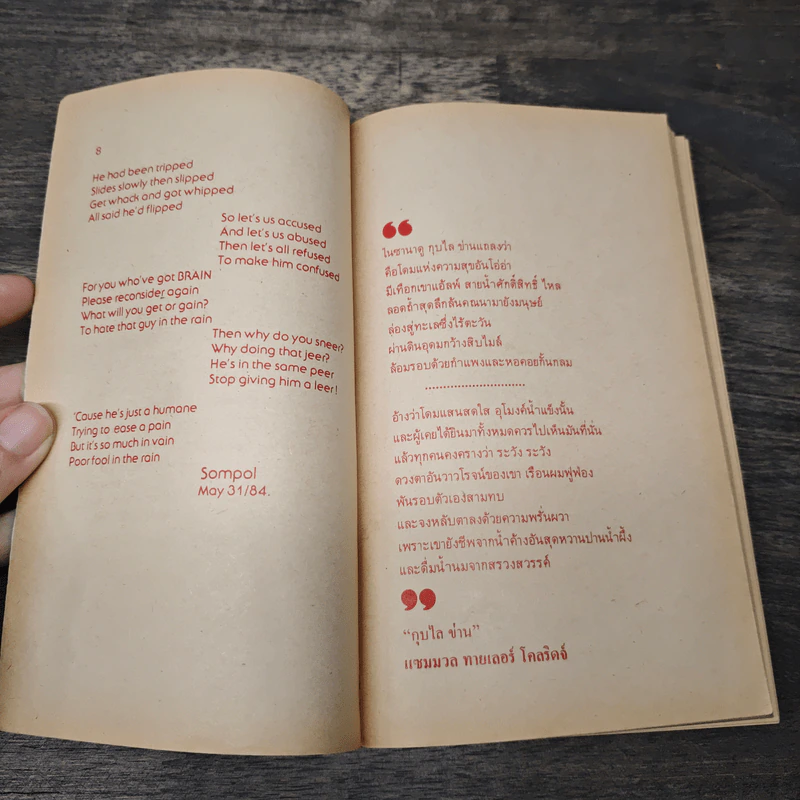 8
He had been tripped
Slides slowly then slipped
Get whack and got whipped
All said he'd flipped
So let's us accused
And let's us abused
Then let's all refused
To make him confused
For you who've got BRAIN
Please reconsider again
What will you get or gain?
To hate that guy in the rain
Then why do you sneer?
Why doing that jeer?
He's in the same peer
Stop giving him a leer!
'Cause he's just a humane
Trying to ease a pain
But it's so much in vain
Poor fool in the rain
Sompol
May 31/84.
“
ในซานาดู กุบไล ข่านแถลงว่า
คือโดมแห่งความสุขอันโอ่อ่า
มีเทือกเขาแอ๊ลฟ์ สายน้ำศักดิ์สิทธิ์ ไหล
ลอดถ้ำสุดลึกล้นคณนามายังมนุษย์
ล่องสู่ทะเลซึ่งไร้ตะวัน
ผ่านดินอุดมกว้างสิบไมล์
ล้อมรอบด้วยกำแพงและหอคอยกั้นกลม
............................
อ้างว่าโดมแสนสดใส อุโมงค์น้ำแข็งนั้น
และผู้เคยได้ยินมาทั้งหมดควรไปเห็นมันที่นั่น
แล้วทุกคนคงครางว่า ระวัง ระวัง
ดวงตาอันวาวโรจน์ของเขา เรือนผมฟูฟ่อง
พันรอบตัวเองสามทบ
และจงหลับตาลงด้วยความพรั่นผวา
เพราะเขายังชีพจากน้ำค้างอันสุดหวานปานน้ำผึ้ง
และดื่มน้ำนมจากสรวงสวรรค์
”
“กุบไล ข่าน”
แซมมวล ทายเลอร์ โคลริดจ์